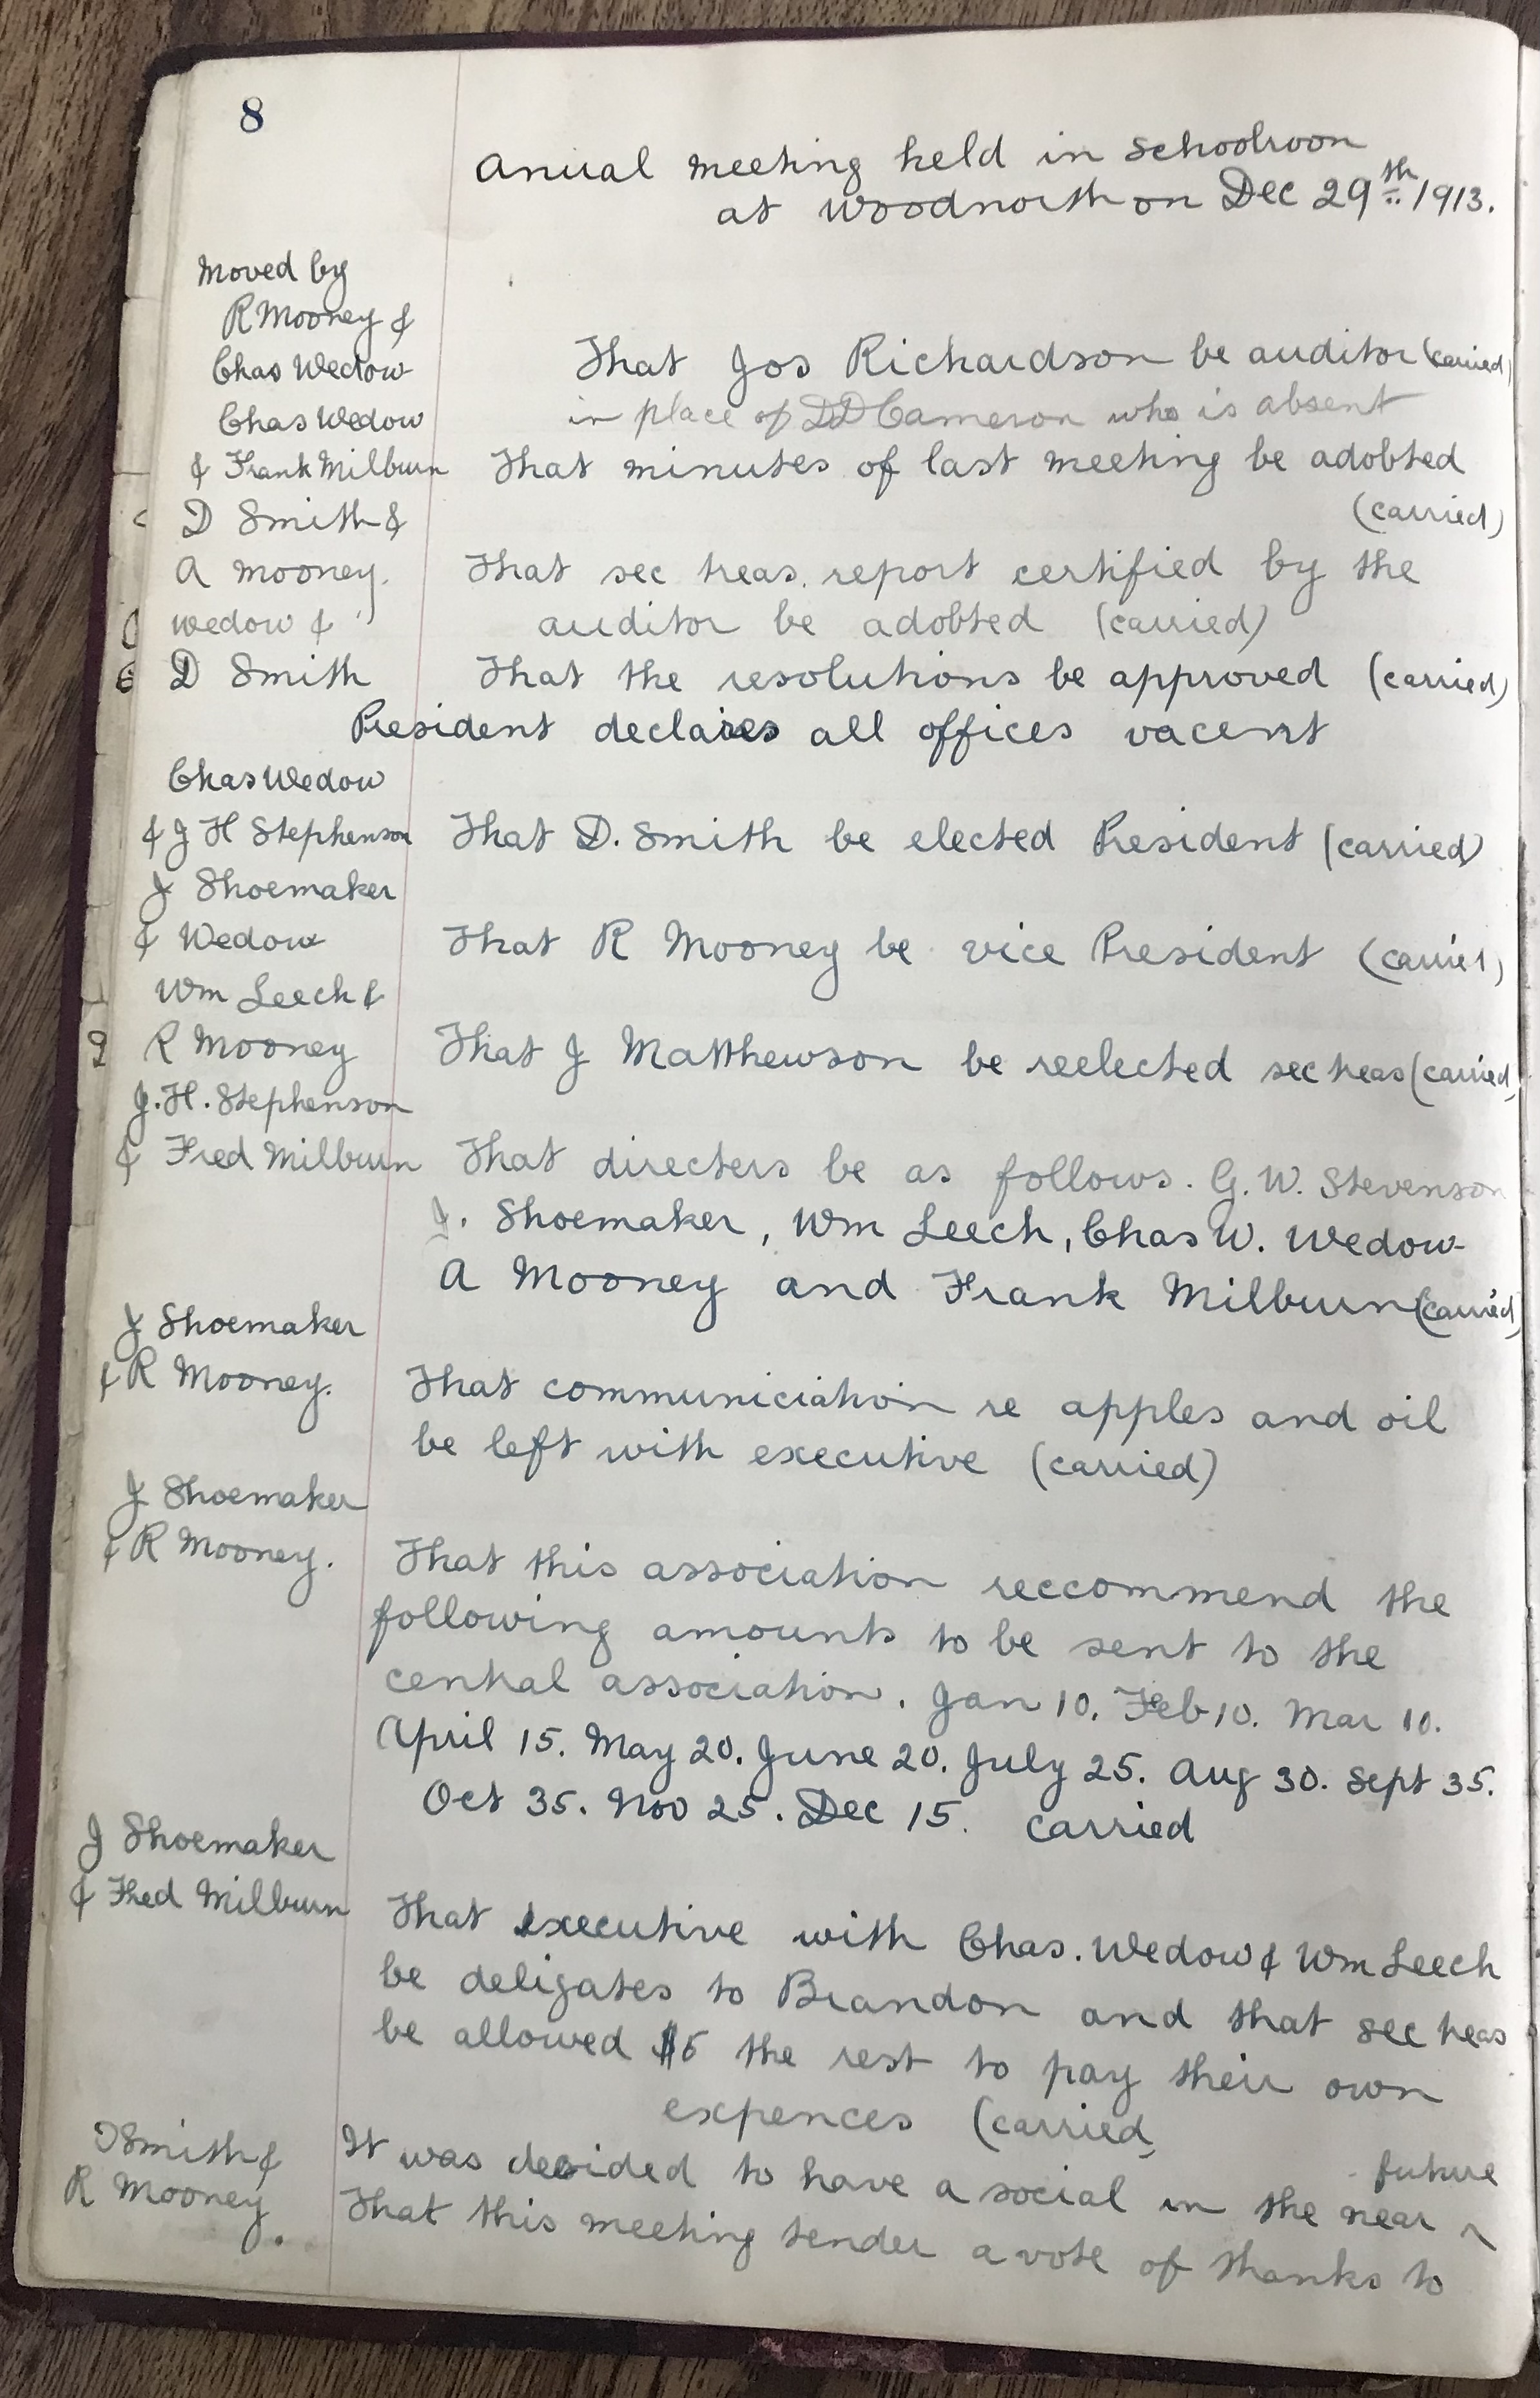 8
Anual meeting held in schoolroon
at Woodnorth on Dec 29th 1913.
Moved by
R Mooney &
Chas Wedow
That Jos Richardson be auditor (carried)
Chas Wedow
in place of DD Cameron who is absent
& Frank Milburn
That minutes of last meeting be adobted
D Smith &
(carried)
A Mooney.
That sec treas. report certified by the
Wedow &
auditor be adobted (carried)
D Smith
That the resolutions be approved (carried)
President declaires all offices vacent
Chas Wedow
& J H Stephenson
That D. Smith be elected President (carried)
J Shoemaker
& Wedow
That R Mooney be vice President (carried)
Wm Leech &
R Mooney
That J Matthewson be reelected sec treas (carried)
J. H. Stephenson
& Fred Milburn
That directers be as follows. G. W. Stevenson
J. Shoemaker, Wm Leech, Chas W. Wedow
A Mooney and Frank Milburn (carried)
J Shoemaker
& R Mooney.
That communiciation re apples and oil
be left with executive (carried)
J Shoemaker
& R Mooney.
That this association reccommend the
following amounts to be sent to the
central association. Jan 10. Feb 10. Mar 10.
April 15. May 20. June 20. July 25. Aug 30. Sept 35.
Oct 35. Nov 25. Dec 15. carried
J Shoemaker
& Fred Milburn
That executive with Chas. Wedow & Wm Leech
be deligates to Brandon and that sec treas
be allowed $5 the rest to pay their own
expences (carried)
D Smith &
It was decided to have a social in the near future
R Mooney.
That this meeting tender a vote of thanks to